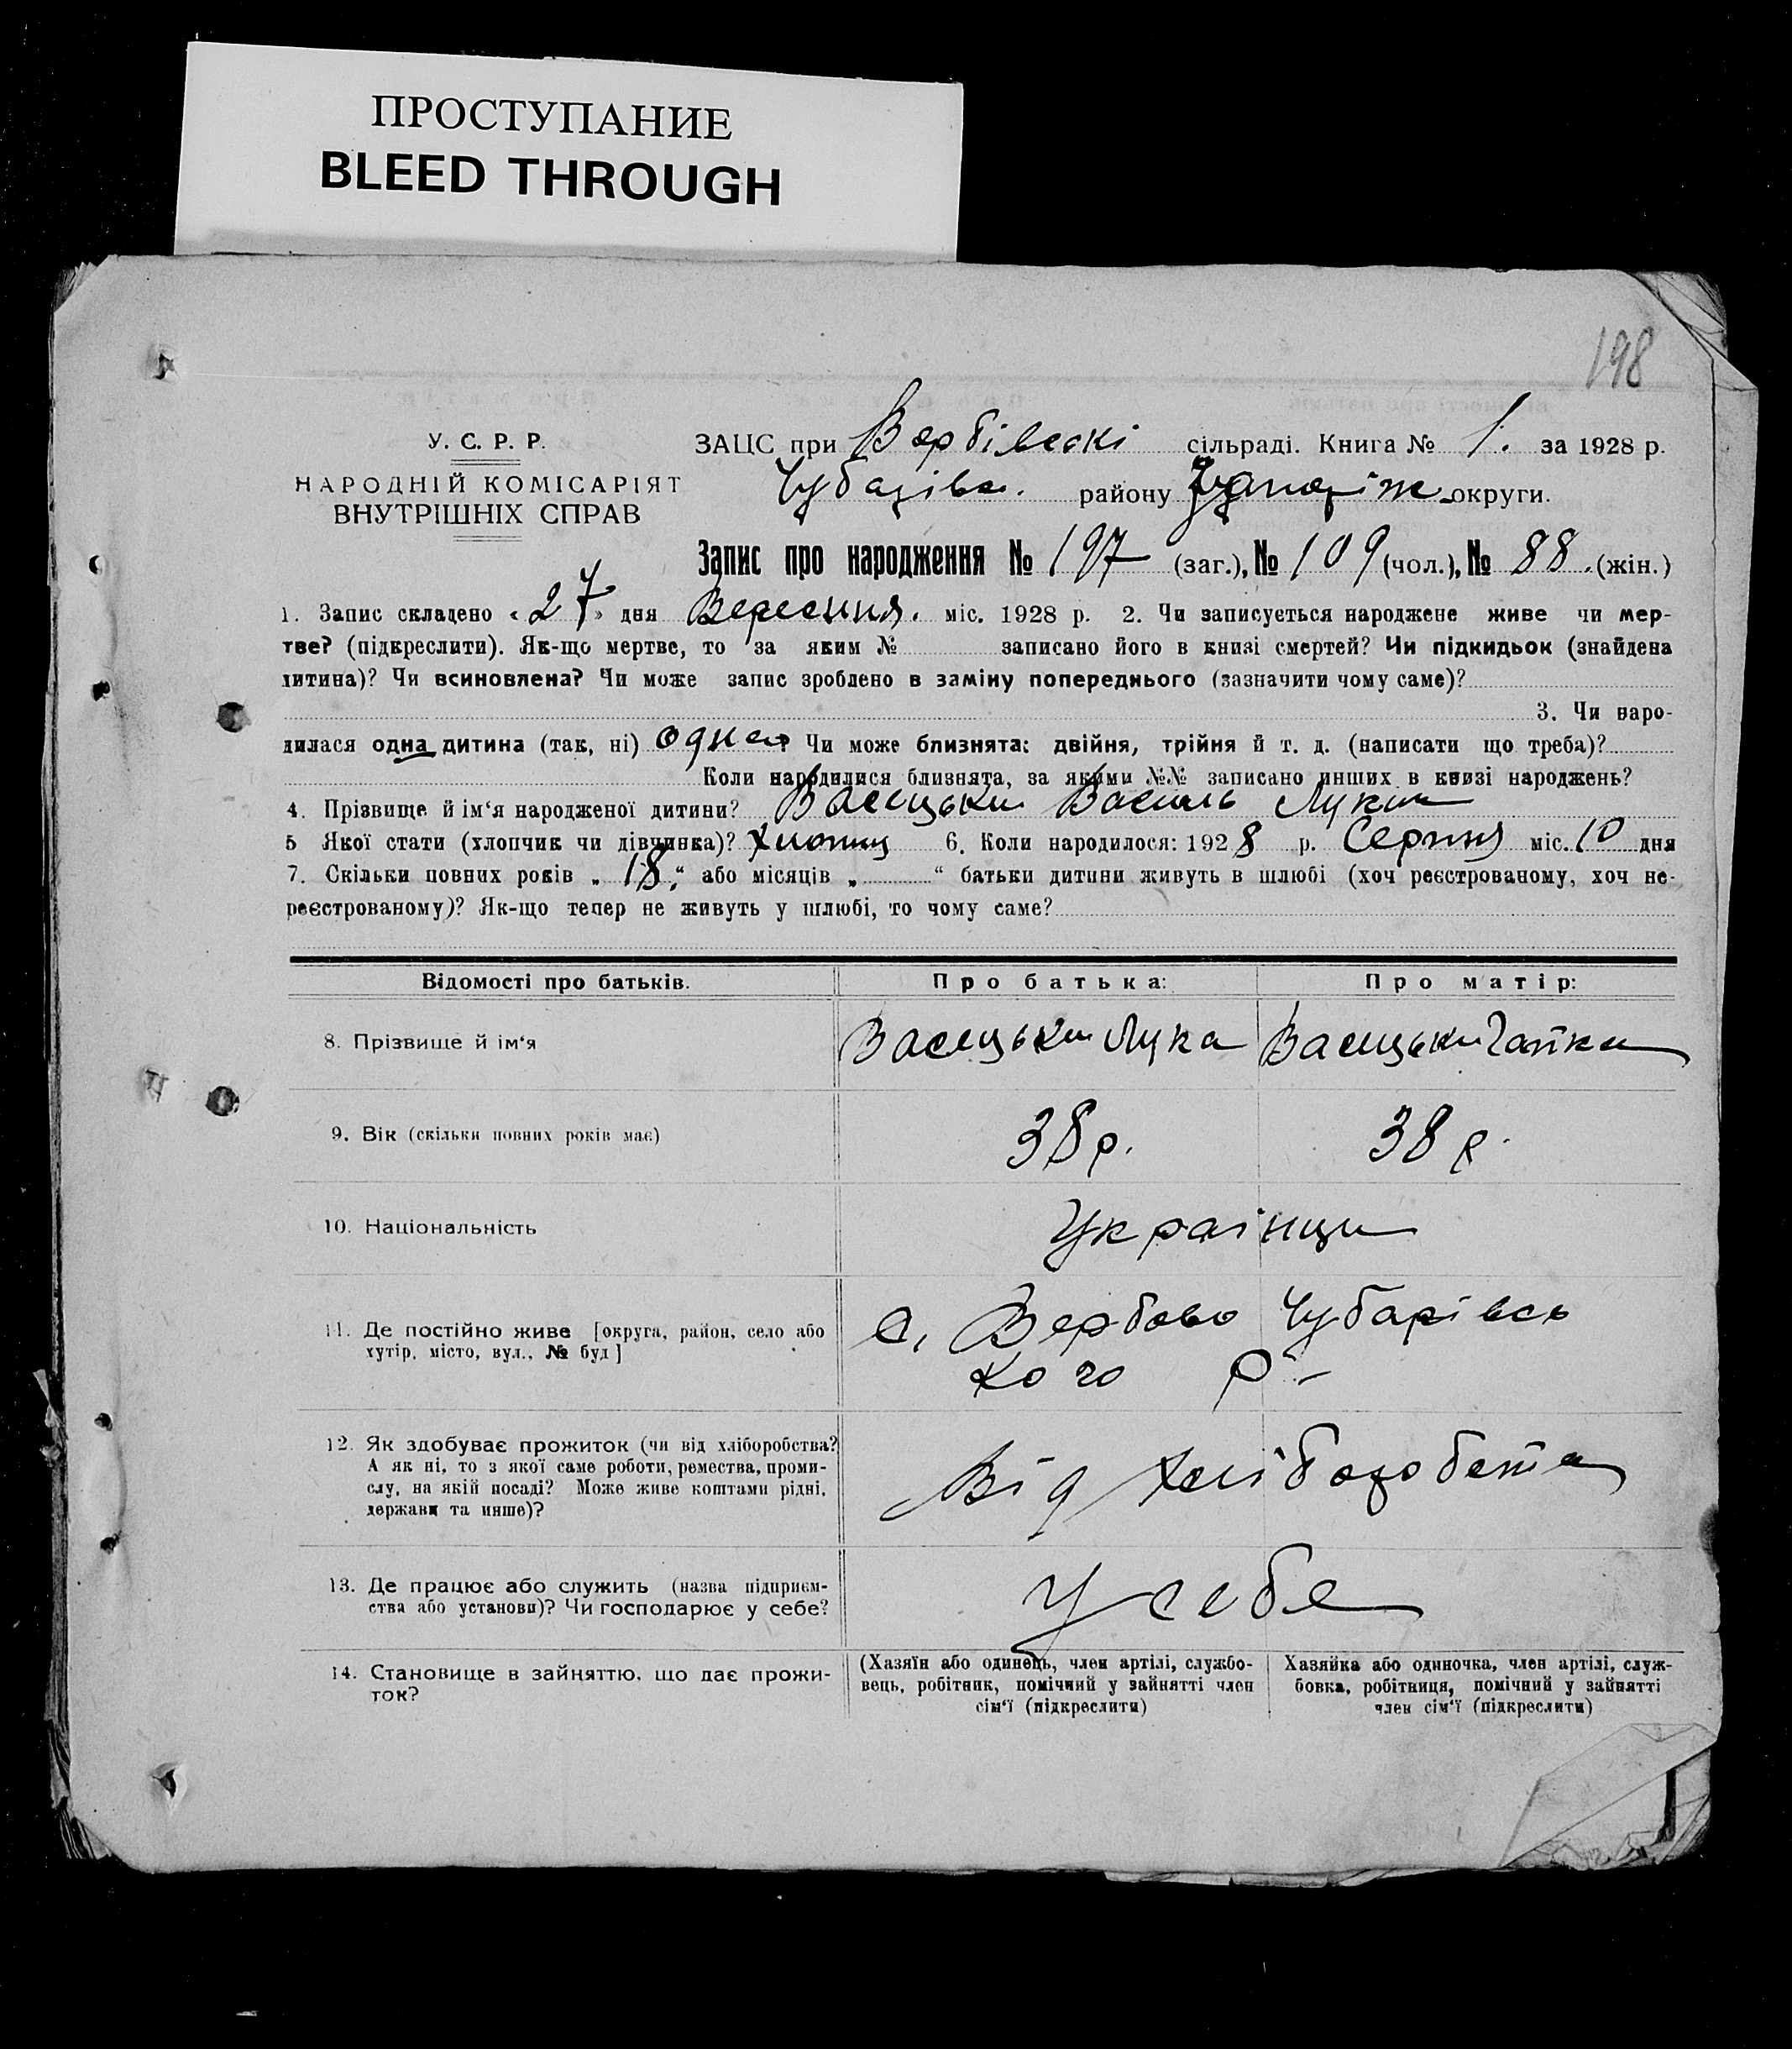 ПРОСТУПАНИЕ
BLEED THROUGH
198
У. С. Р. Р.
НАРОДНІЙ КОМІСАРІЯТ
ВНУТРІШНІХ СПРАВ
ЗАЦС при Вербівскі сільраді. Книга № 1. за 1928 р.
Чубарівс. району округи.
Запис про народження № 197 (заг.), № 109 (чол.), № 88. (жін.)
1. Запис складено «27» дня Вересиня. міс. 1928 р. 2. Чи записується народжене живе чи мер-
тве? (підкреслити). Як-що мертве, то за яким № записано його в книзі смертей? Чи підкидьок (знайдена
дитина)? Чи всиновлена? Чи може запис зроблено в заміну попереднього (зазначити чому саме)?
3. Чи наро-
дилася одна дитина (так, ні) одна? Чи може близнята: двійня, трійня й т. д. (написати що треба)?
Коли народилися близнята, за якими №№ записано инших в книзі народжень?
4. Прізвище й ім‘я народженої дитини? Василь Лукич
5 Якої стати (хлопчик чи дівчинка)? 6. Коли народилося: 1928 р. Серпня міс. 10 дня
7. Скільки повних років „ 18 “ або місяців „ “ батьки дитини живуть в шлюбі (хоч реєстрованому, хоч не-
реєстрованому)? Як-що тепер не живуть у шлюбі, то чому саме?
Відомості про батьків. Про батька: Про матір:
8. Прізвище й ім‘я Лука
9. Вік (скільки повних років має) 38 р. 38 р.
10. Національність Українци
11. Де постійно живе [округа, район, село або
хутір, місто, вул., № буд]
с. Вербово Чубарівсь
кого р-
12. Як здобуває прожиток (чи від хліборобства?
А як ні, то з якої саме роботи, ремества, проми-
слу, на якій посаді? Може живе коштами рідні,
держави та инше)?
Від
13. Де працює або служить (назва підприєм-
ства або установи)? Чи господарює у себе?
У себе
14. Становище в зайняттю, що дає прожи-
ток?
(Хазяїн або одинець, член артілі, службо-
вець, робітник, помічний у зайнятті член
сім‘ї (підкреслити)
Хазяйка або одиночка, член артілі, служ-
бовка, робітниця, помічний у зайнятті
член сім‘ї (підкреслити)